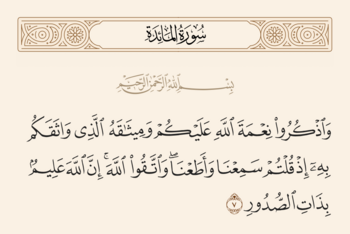 سُورَةُ المَائِدَةِ
بِسْمِ اللَّهِ الرَّحْمَٰنِ الرَّحِيمِ
وَٱذْكُرُوا۟ نِعْمَةَ ٱللَّهِ عَلَيْكُمْ وَمِيثَـٰقَهُ ٱلَّذِى وَاثَقَكُم
بِهِۦٓ إِذْ قُلْتُمْ سَمِعْنَا وَأَطَعْنَا ۖ وَٱتَّقُوا۟ ٱللَّهَ ۚ إِنَّ ٱللَّهَ عَلِيمٌۢ
بِذَاتِ ٱلصُّدُورِ ٧